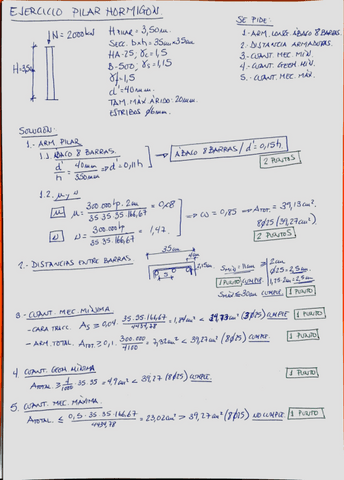 EJERCICIO PILAR HORMIGÓN
N = 2000 KN
H=3,5m
H PILAR = 3,50m
SECC. b×h = 35cm×35cm
HA-25; γc = 1,5
B-500; γs = 1,15
γf = 1,5
d' = 40mm
TAM. MÁX ÁRIDO: 20mm
ESTRIBOS Ø6mm.
SE PIDE:
1.- ARM. LONG. ÁBACO 8 BARRAS
2.- DISTANCIA ARMADURAS
3.- CUANT. MEC. MÍN.
4.- CUANT. GEOM. MÍN.
5.- CUANT. MEC. MÁX.
SOLUCIÓN:
1.- ARM. PILAR
1.1. ÁBACO 8 BARRAS.
d'/h = 40mm/350mm ⇒ d' = 0,11h
ÁBACO 8 BARRAS / d' = 0,15h
2 PUNTOS
1.2. μ y ν
μ μ = 300.000kp. 2cm / 35.35.35.166,67 = 0,08
ν ν = 300.000 / 35.35.166,67 = 1,47.
⇒ ω = 0,85 → A TOT. = 39,13cm².
8Ø25 (39,27cm²)
2 PUNTOS
2.- DISTANCIAS ENTRE BARRAS
35cm
1 PUNTO CUMPLE.
Ø25 = 2,5cm.
1,25.2cm = 2,5cm
CUMPLE 1 PUNTO
3.- CUANT. MEC. MÍNIMA
- CARA TRACC. As ≥ 0,04 35.35.166,67 / 4434,78 = 1,84cm² < CUMPLE 1 PUNTO
- ARM. TOTAL. A TOT ≥ 0,1. 300.000 / 4100 = 7,32cm² < 39,27cm² (8Ø25) CUMPLE.
4 CUANT. GEOM. MÍNIMA
A TOTAL ≥ 4/1000 . 35.35 = 4,9cm² < 39,27 (8Ø25) CUMPLE.
1 PUNTO
5. CUANT. MEC. MÁXIMA.
A TOTAL. ≤ 0,5.35.35.166,67 / 4434,78 = 23,02cm² > 39,27cm² (8Ø25) NO CUMPLE.
1 PUNTO